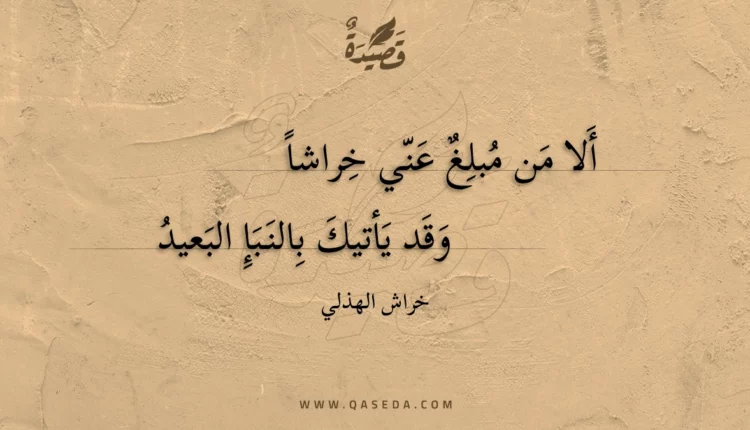 قَصِيدَةٌ
أَلا مَن مُبلِغٌ عَنّي خِراشاً
وَقَد يَأتيكَ بِالنَبَإِ البَعيدُ
خراش الهذلي
WWW.QASEDA.COM